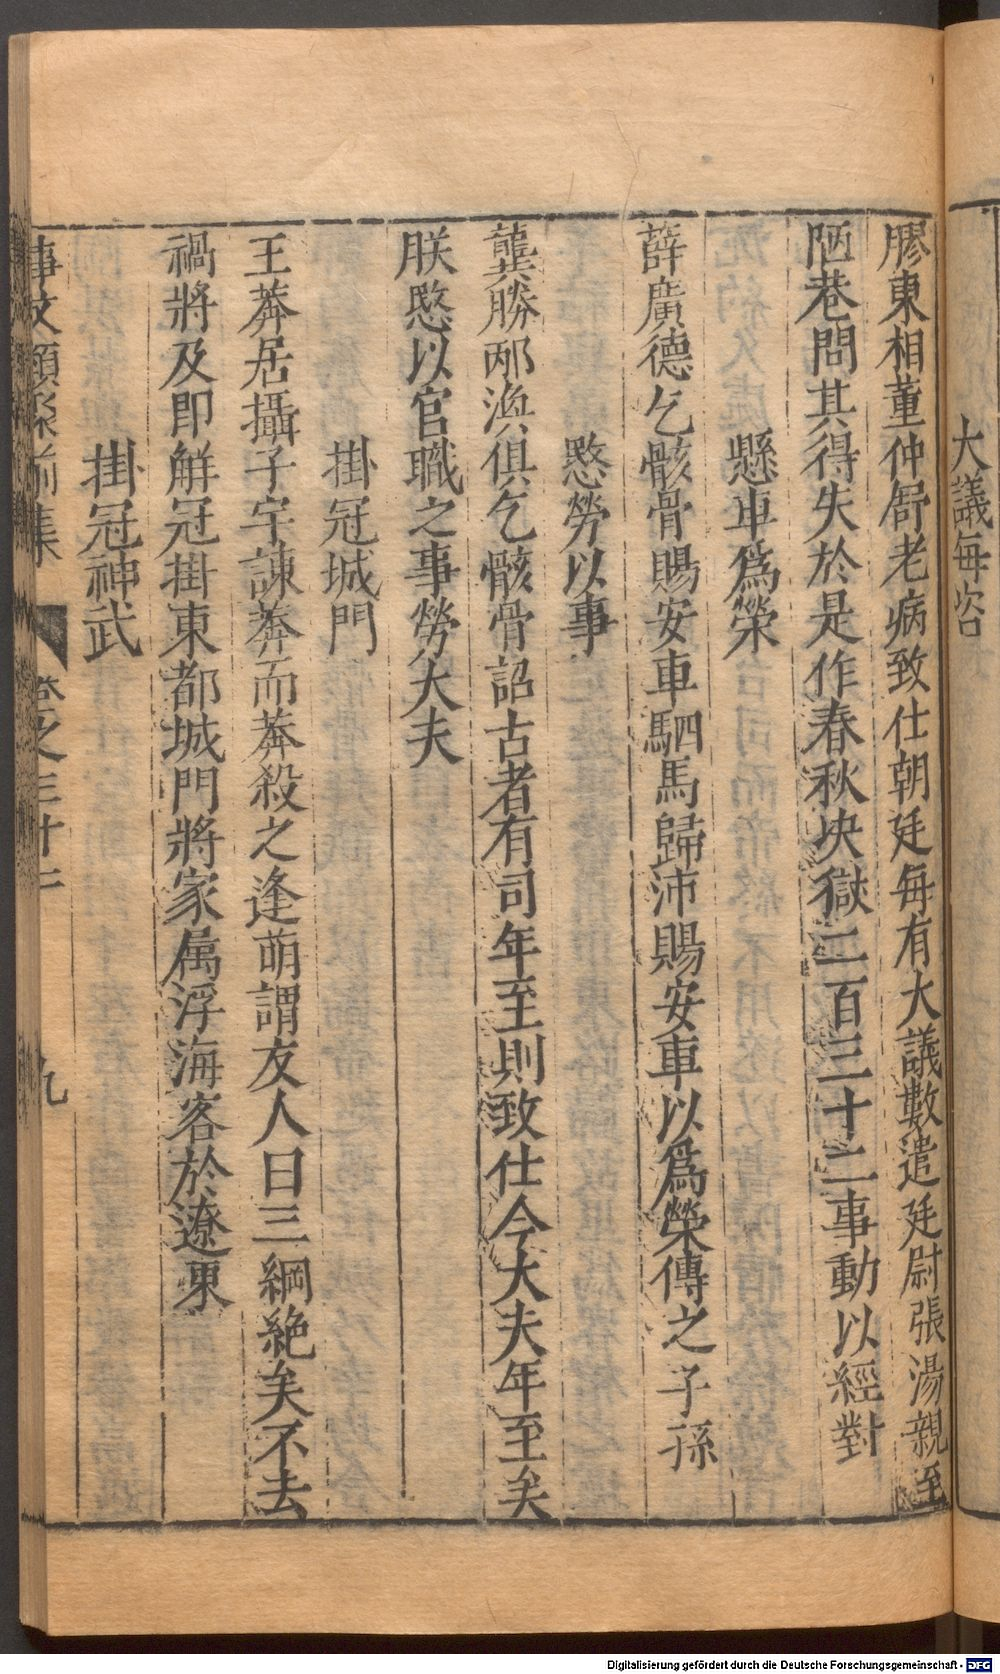 大議每咨
膠東相董仲舒老病致仕朝廷每有大議數遣廷尉張湯親至
陋巷問其得失於是作春秋决獄二百三十二事動以經對
懸車爲榮
薛廣德乞骸骨賜安車駟馬歸沛賜安車以爲榮傳之子孫
愍勞以事
龔勝邴漢俱乞骸骨詔古者有司年至則致仕今大夫年至矣
朕愍以官職之事勞大夫
掛冠城門
王莽居攝子宇諫莽而莽殺之逢萌謂友人曰三綱絶矣不去
禍將及即解冠掛東都城門將家属浮海客於遼東
掛冠神武
事文類聚前集 卷之三十二 九
Digitalisierung gefördert durch die Deutsche Forschungsgemeinschaft - DFG